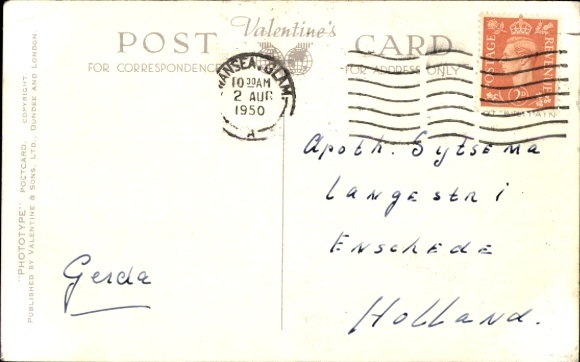 POST Valentine's CARD
FOR CORRESPONDENCE FOR ADDRESS ONLY
SWANSEA. GLAM.
10 30 AM
2 AUG
1950
A
POSTAGE REVENUE
"PHOTOTYPE" POSTCARD. COPYRIGHT.
PUBLISHED BY VALENTINE & SONS, LTD., DUNDEE AND LONDON.
Apoth. Sytsema
Langestr 1
Enschede
Holland.
Gerda